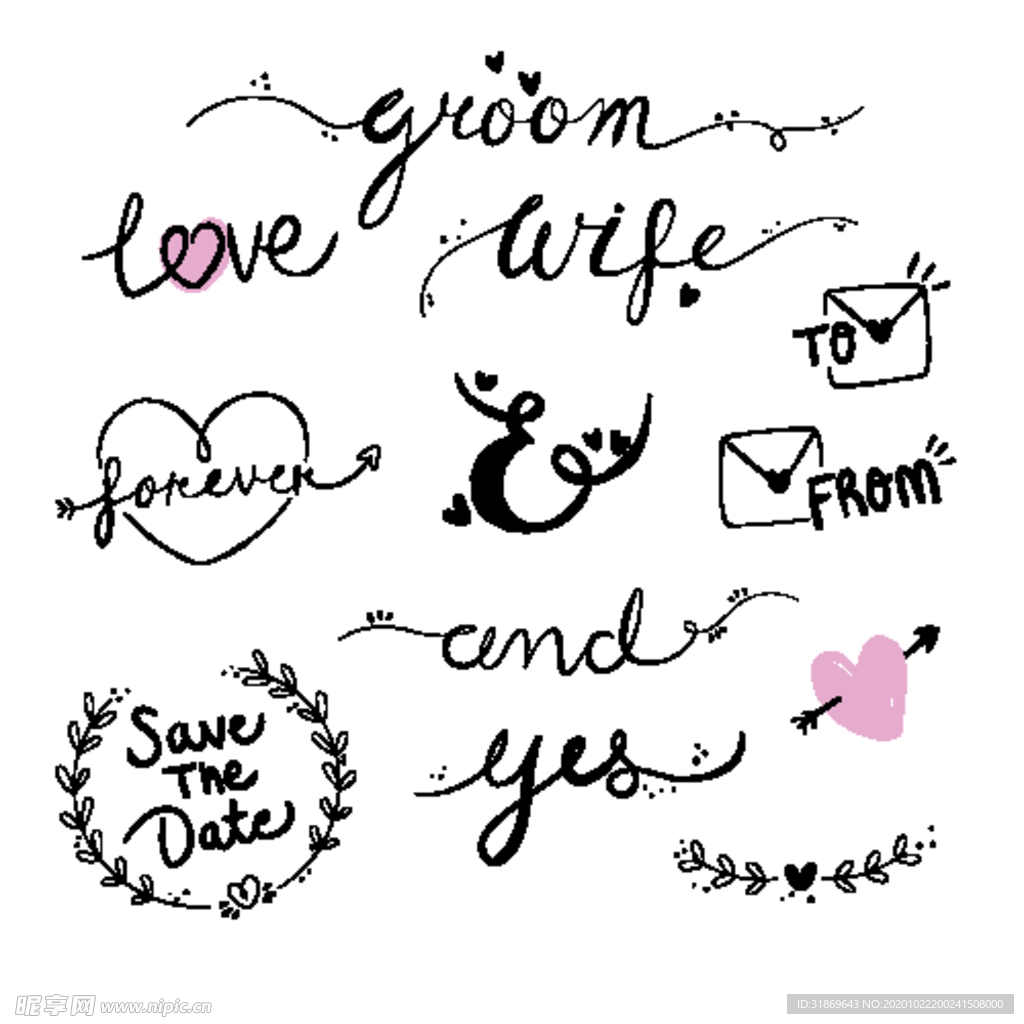 groom
love
wife
TO
forever
&
FROM
and
Save
The
Date
yes
昵享网 www.nipic.cn
ID:31869643 NO:20201022200241508000